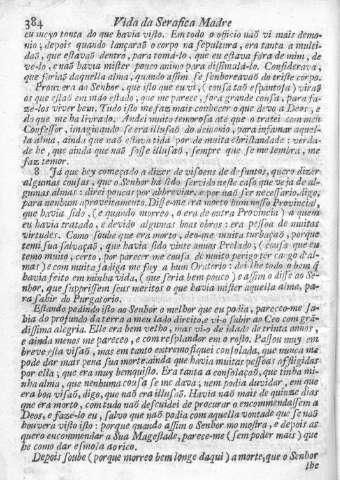 384 Vida da Serafica Madre
eu meyo tonta do que havia visto. Em todo o officio naõ vi mais demo-
nio, depois quando lançaraõ o corpo na sepultura, era tanta a multi-
daõ, que estavaõ dentro, para tomá-lo, que eu estava fóra de mim, de
ve-lo, e naõ havia mister pouco animo para dissimulá-lo. Considerava,
que fariaõ daquella alma, quando assim se senhoreavaõ do triste corpo.
Prouvera ao Senhor, que isto que eu vi, (cousa taõ espantosa) viraõ
os que estaõ em máo estado, que me parece, fora grande cousa, para fa-
ze-los viver bem. Tudo isto me faz mais conhecer o que devo a Deos, e
do que me ha livrado. Andei muito temerosa até que o tratei com meu
Confessor, imaginando se era illusaõ do demonio, para infamar aquel-
la alma, ainda que naõ estava tida por de muita christandade: verda-
de he, que ainda que naõ fosse illusaõ, sempre que se me lembra, me
faz temor.
8 Já que hey começado a dizer de visoens de defuntos, quero dizer
algumas cousas, que o Senhor há sido servido neste caso que veja de al-
gumas almas: direi poucas por abbreviar, e por naõ ser necessario, digo,
para nenhum aproveitamento. Disse-me era morto hum nosso Provincial,
que havia sido, (e quando morreo, o era de outra Provincia) a quem
eu havia tratado, e devido algumas boas obras: era pessoa de muitas
virtudes. Como soube que era morto, deo-me muita turbaçaõ, porque
temi sua salvaçaõ, que havia sido vinte annos Prelado, (cousa que eu
temo muito, certo, por parecer-me cousa de muito perigo ter cargo d'al-
mas) e com muita fadiga me fuy a hum Oratorio: dei-lhe todo o bem q
havia feito em minha vida, (que seria bem pouco) e assim o disse ao Se-
nhor, que suprissem seus meritos o que havia mister aquella alma, pa-
ra sahir do Purgatorio.
Estando pedindo isto ao Senhor o melhor que eu podia, pareceo-me sa-
hia do profundo da terra a meu lado direito, e vi-o subir ao Ceo com gran-
dissima alegria. Elle era bem velho, mas vi-o de idade de trinta annos,
e ainda menos me pareceo, e com resplandor em o rosto. Passou muy em
breve esta visaõ, mas em tanto extremo fiquei consolada, que nunca me
pode dar mais pena sua morte, ainda que havia muitas pessoas affligidas
por ella; que era muy bemquisto. Era tanta a consolaçaõ, que tinha mi-
nha alma, que nenhuma cousa se me dava, nem podia duvidar, em que
era boa visaõ, digo, que naõ era illusaõ. Havia naõ mais de quinze dias
que era morto, com tudo naõ descuidei de procurar o encommendassem a
Deos, e faze-lo eu, salvo que naõ podia com aquella vontade que se naõ
houvera visto isto: porque quando assim o Senhor mo mostra, e depois as
quero encommendar a Sua Magestade, parece-me (sem poder mais) que
he como dar esmola ao rico.
Depois soube (porque morreo bem longe daqui) a morte, que o Senhor
lhe